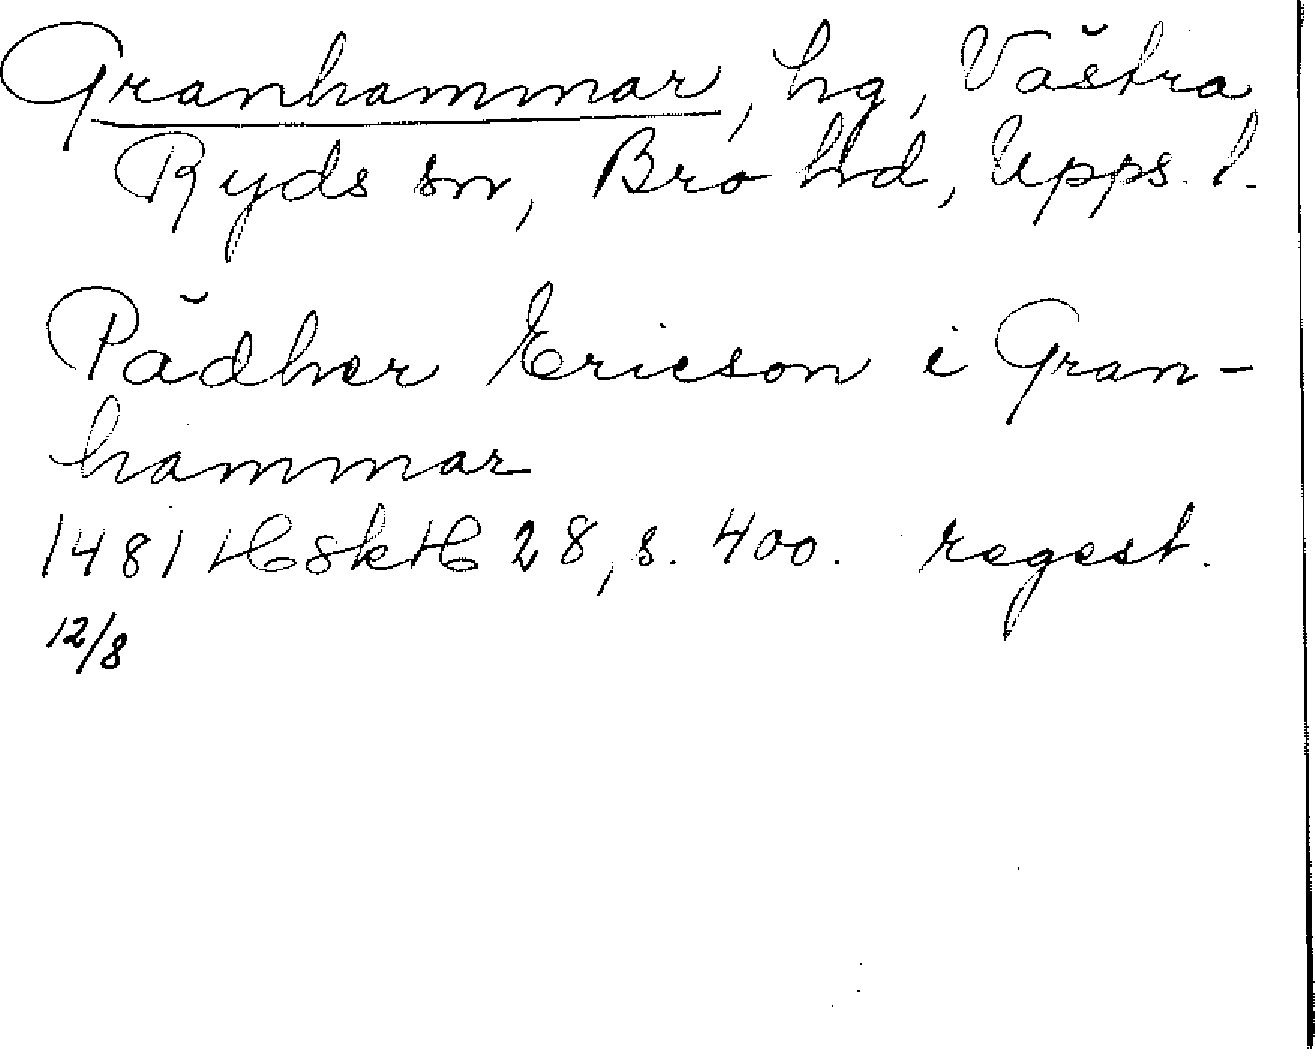 Granhammar, hg, Västra
Ryds sn, Bro hd, Upps. l.
Pädher Ericson i Gran-
hammar
1481 HSkH 28, s. 400. regest.
12/8